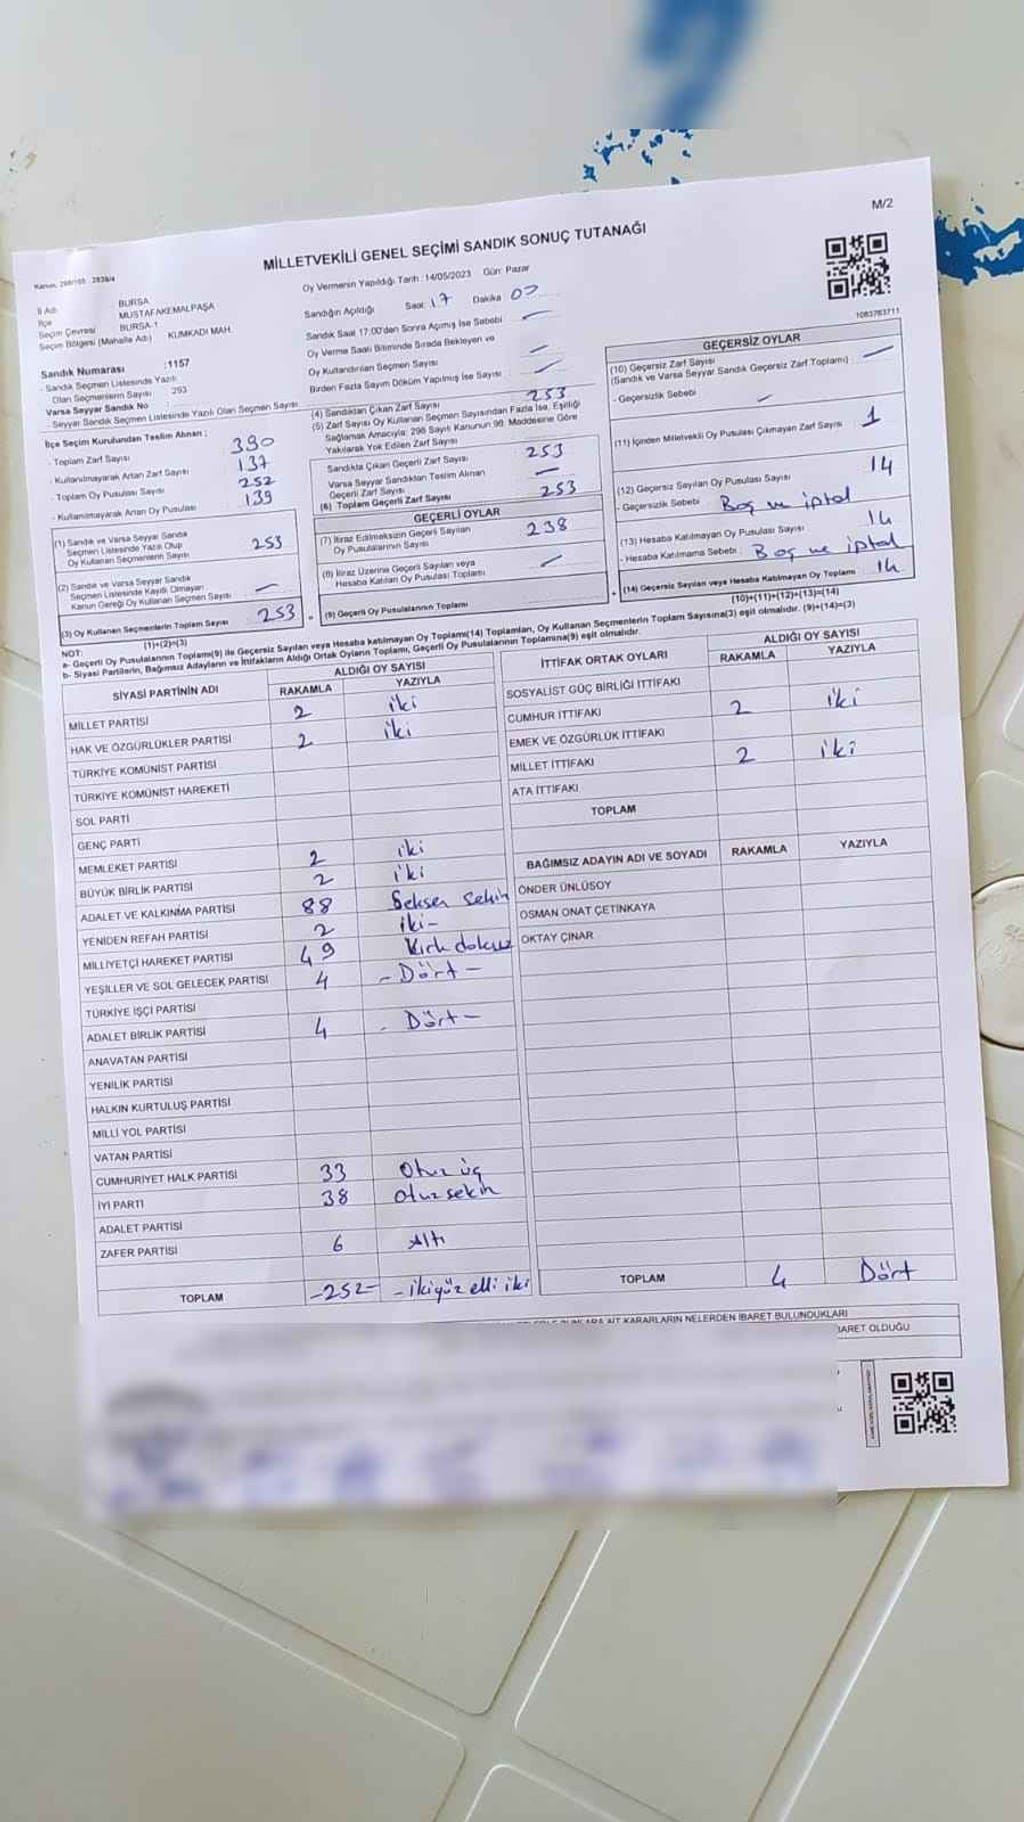 M/2
MİLLETVEKİLİ GENEL SEÇİMİ SANDIK SONUÇ TUTANAĞI
Oy Vermenin Yapıldığı Tarih : 14/05/2023 Gün: Pazar
İl Adı BURSA
İlçe MUSTAFAKEMALPAŞA
Seçim Çevresi BURSA-1
Seçim Bölgesi (Mahalle Adı) KUMKADI MAH.
Sandık Numarası :1157
- Sandık Seçmen Listesinde Yazılı
Olan Seçmenlerin Sayısı : 293
Varsa Seyyar Sandık No
- Seyyar Sandık Seçmen Listesinde Yazılı Olan Seçmen Sayısı
İlçe Seçim Kurulundan Teslim Alınan :
- Toplam Zarf Sayısı 390
- Kullanılmayarak Artan Zarf Sayısı 137
- Toplam Oy Pusulası Sayısı 252
- Kullanılmayarak Artan Oy Pusulası 139
(1) Sandık ve Varsa Seyyar Sandık
Seçmen Listesinde Yazılı Olup
Oy Kullanan Seçmenlerin Sayısı 253
(2) Sandık ve Varsa Seyyar Sandık
Seçmen Listesinde Kayıtlı Olmayan
Kanun Gereği Oy Kullanan Seçmen Sayısı —
(3) Oy Kullanan Seçmenlerin Toplam Sayısı 253
(1)+(2)=(3)
Sandığın Açıldığı Saat: 17 Dakika 03
Sandık Saat 17:00'den Sonra Açılmış İse Sebebi —
Oy Verme Saati Bitiminde Sırada Bekleyen ve
Oy Kullandırılan Seçmen Sayısı —
Birden Fazla Sayım Döküm Yapılmış İse Sayısı —
(4) Sandıktan Çıkan Zarf Sayısı 253
(5) Zarf Sayısı Oy Kullanan Seçmen Sayısından Fazla İse, Eşitliği
Sağlamak Amacıyla; 298 Sayılı Kanunun 98. Maddesine Göre
Yakılarak Yok Edilen Zarf Sayısı
Sandıkta Çıkan Geçerli Zarf Sayısı 253
Varsa Seyyar Sandıktan Teslim Alınan
Geçerli Zarf Sayısı —
(6) Toplam Geçerli Zarf Sayısı 253
GEÇERLİ OYLAR
(7) İtiraz Edilmeksizin Geçerli Sayılan
Oy Pusulalarının Sayısı 238
(8) İtiraz Üzerine Geçerli Sayılan veya
Hesaba Katılan Oy Pusulası Toplamı —
(9) Geçerli Oy Pusulalarının Toplamı
1083763711
GEÇERSİZ OYLAR
(10) Geçersiz Zarf Sayısı
(Sandık ve Varsa Seyyar Sandık Geçersiz Zarf Toplamı) : —
- Geçersizlik Sebebi —
(11) İçinden Milletvekili Oy Pusulası Çıkmayan Zarf Sayısı 1
(12) Geçersiz Sayılan Oy Pusulası Sayısı 14
- Geçersizlik Sebebi Boş ve iptal
(13) Hesaba Katılmayan Oy Pusulası Sayısı 14
- Hesaba Katılmama Sebebi : Boş ve iptal
(14) Geçersiz Sayılan veya Hesaba Katılmayan Oy Toplamı 14
(10)+(11)+(12)+(13)=(14)
NOT:
a- Geçerli Oy Pusulalarının Toplamı(9) ile Geçersiz Sayılan veya Hesaba katılmayan Oy Toplamı(14) Toplamları, Oy Kullanan Seçmenlerin Toplam Sayısına(3) eşit olmalıdır. (9)+(14)=(3)
b- Siyasi Partilerin, Bağımsız Adayların ve İttifakların Aldığı Ortak Oyların Toplamı, Geçerli Oy Pusulalarının Toplamına(9) eşit olmalıdır.
SİYASİ PARTİNİN ADI ALDIĞI OY SAYISI
RAKAMLA YAZIYLA
MİLLET PARTİSİ 2 iki
HAK VE ÖZGÜRLÜKLER PARTİSİ 2 iki
TÜRKİYE KOMÜNİST PARTİSİ
TÜRKİYE KOMÜNİST HAREKETİ
SOL PARTİ
GENÇ PARTİ
MEMLEKET PARTİSİ 2 iki
BÜYÜK BİRLİK PARTİSİ 2 iki
ADALET VE KALKINMA PARTİSİ 88 Seksen Sekiz
YENİDEN REFAH PARTİSİ 2 iki-
MİLLİYETÇİ HAREKET PARTİSİ 49 Kırk dokuz
YEŞİLLER VE SOL GELECEK PARTİSİ 4 - Dört -
TÜRKİYE İŞÇİ PARTİSİ
ADALET BİRLİK PARTİSİ 4 - Dört -
ANAVATAN PARTİSİ
YENİLİK PARTİSİ
HALKIN KURTULUŞ PARTİSİ
MİLLİ YOL PARTİSİ
VATAN PARTİSİ
CUMHURİYET HALK PARTİSİ 33 Otuz üç
İYİ PARTİ 38 Otuz sekiz
ADALET PARTİSİ
ZAFER PARTİSİ 6 Altı
TOPLAM -252- - ikiyüz elli iki
İTTİFAK ORTAK OYLARI ALDIĞI OY SAYISI
RAKAMLA YAZIYLA
SOSYALİST GÜÇ BİRLİĞİ İTTİFAKI
CUMHUR İTTİFAKI 2 iki
EMEK VE ÖZGÜRLÜK İTTİFAKI
MİLLET İTTİFAKI 2 iki
ATA İTTİFAKI
TOPLAM
BAĞIMSIZ ADAYIN ADI VE SOYADI RAKAMLA YAZIYLA
ÖNDER ÜNLÜSOY
OSMAN ONAT ÇETİNKAYA
OKTAY ÇINAR
TOPLAM 4 Dört
KARARLARIN NELERDEN İBARET BULUNDUKLARI
İBARET OLDUĞU